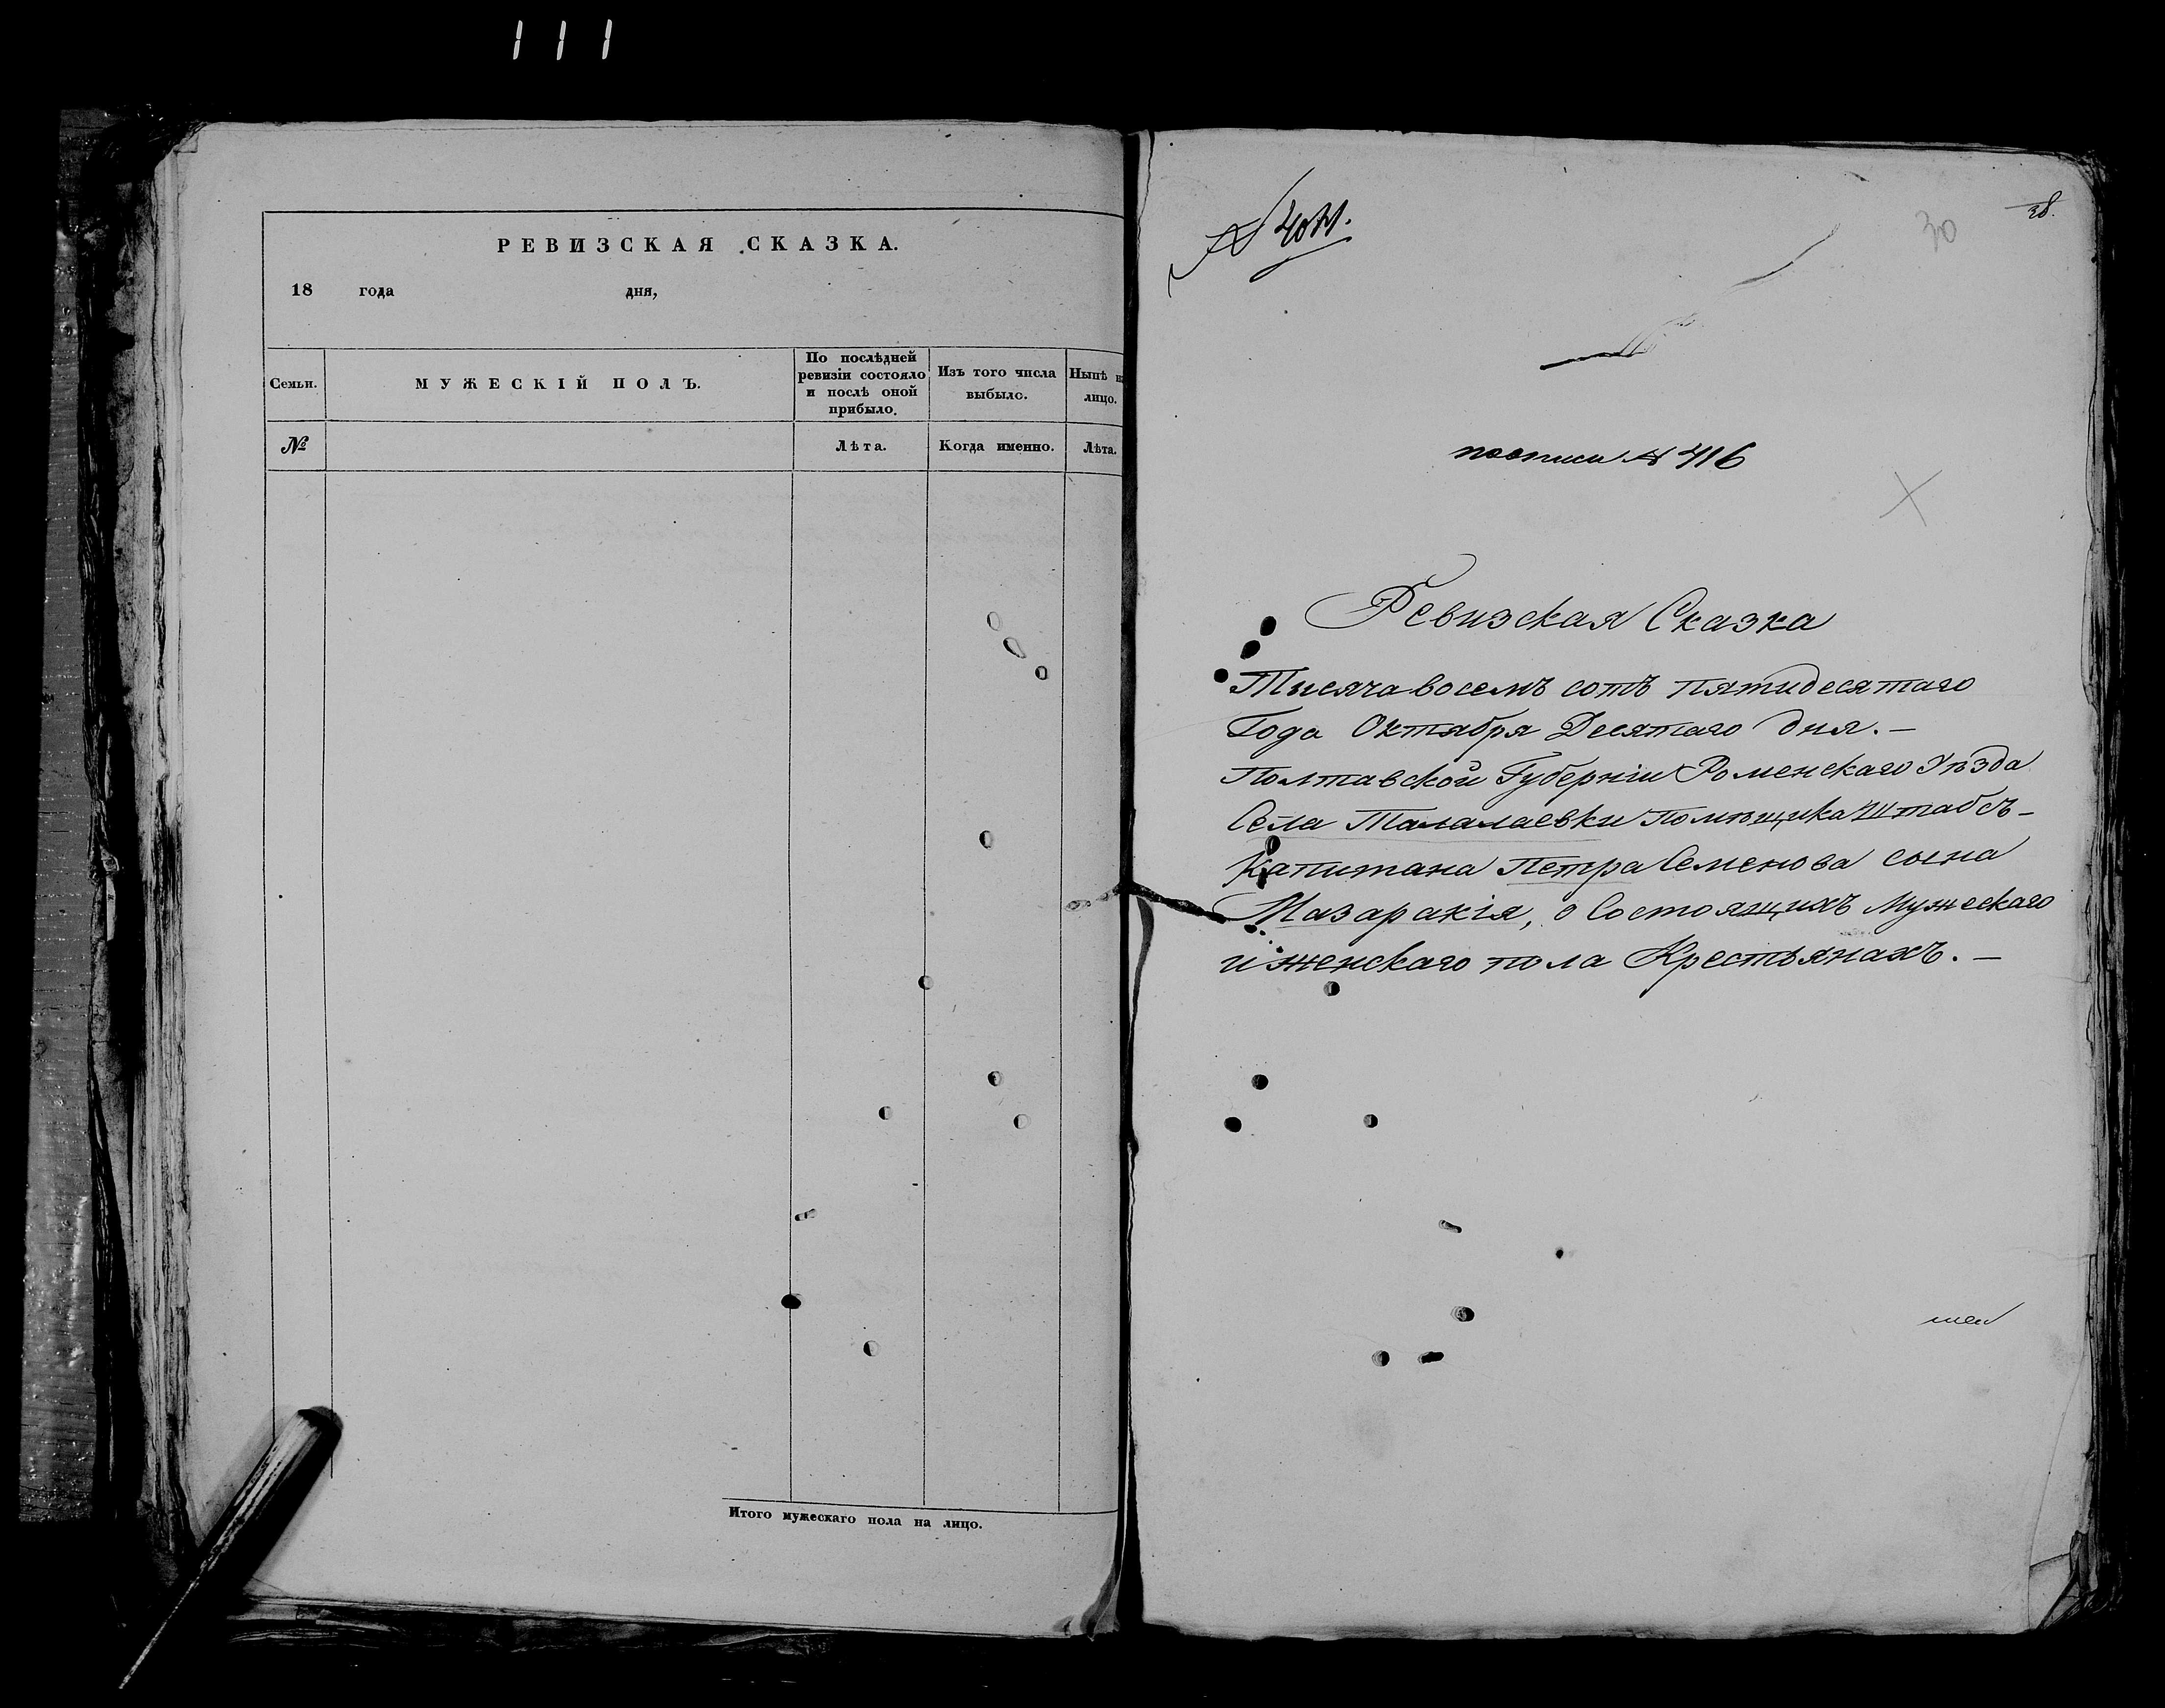 111
РЕВИЗСКАЯ СКАЗКА.
18 года дня,
Семьи.
МУЖЕСКІЙ ПОЛЪ.
По послѣдней
ревизіи состояло
и послѣ оной
прибыло.
Изъ того числа
выбыло.
Нынѣ
лицо.
№
Лѣта.
Когда именно.
Лѣта.
Итого мужескаго пола на лицо.
№
30
28.
по описи № 416
Ревизская Сказка
Тысяча восемъ сотъ пятидесятаго
Года Октября Десятаго дня. —
Полтавской Губерніи Роменскаго Уѣзда
Села Талалаевки Помѣщика Штабсъ-
Капитана Петра Семенова сына
Мазаракія, о Состоящихъ Мужескаго
и женскаго пола Крестьянахъ. —